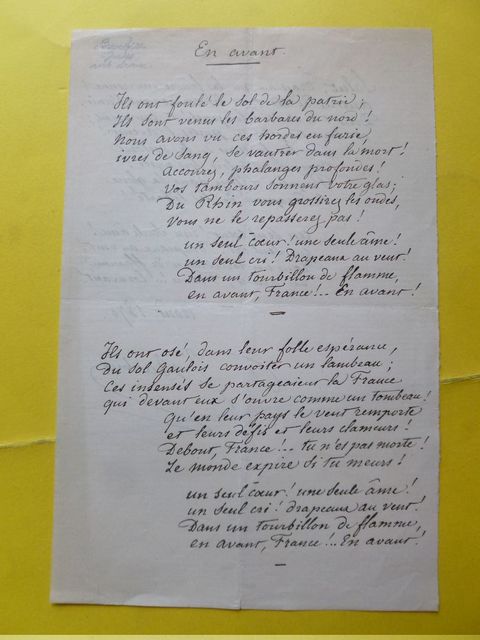 En avant.
Ils ont foulé le sol de la patrie;
Ils sont venus les barbares du nord!
Nous avons vu ces hordes en furie,
ivres de sang, se vautrer dans la mort!
Accourez, phalanges profondes!
Vos tambours sonnent votre glas;
Du Rhin vous grossirez les ondes,
Vous ne le repasserez pas!
un seul cœur! une seule âme!
un seul cri! Drapeaux au vent!
Dans un tourbillon de flamme,
en avant, France!.. En avant!
Ils ont osé, dans leur folle espérance,
Du sol gaulois convoiter un lambeau;
Ces insensés se partageaient la France
qui devant eux s'ouvre comme un tombeau!
Qu'en leur pays le vent remporte
et leurs défis et leurs clameurs!
Debout, France!... tu n'es pas morte!
Le monde expire si tu meurs!
un seul cœur! une seule âme!
un seul cri! drapeaux au vent!
Dans un tourbillon de flamme,
en avant, France!.. En avant!